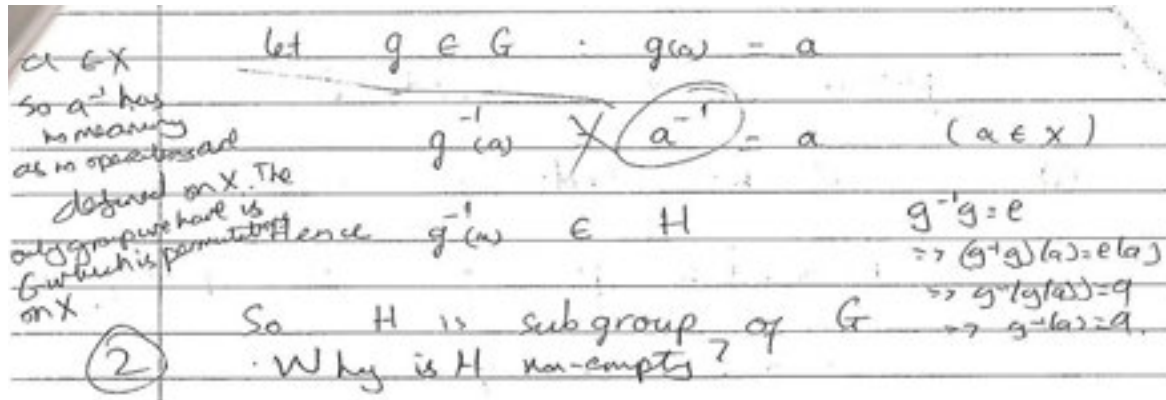 let g ∈ G : g(a) = a
a ∈ X
So a⁻¹ has
no meaning
as no operations are
defined on X. The
only group we have is
G which is permutations
on X.
g⁻¹(a) a⁻¹ = a (a ∈ X)
Hence g⁻¹(a) ∈ H
g⁻¹g = e
=> (g⁻¹g)(a) = e(a)
=> g⁻¹(g(a)) = a
=> g⁻¹(a) = a.
So H is subgroup of G
2 . Why is H non-empty?